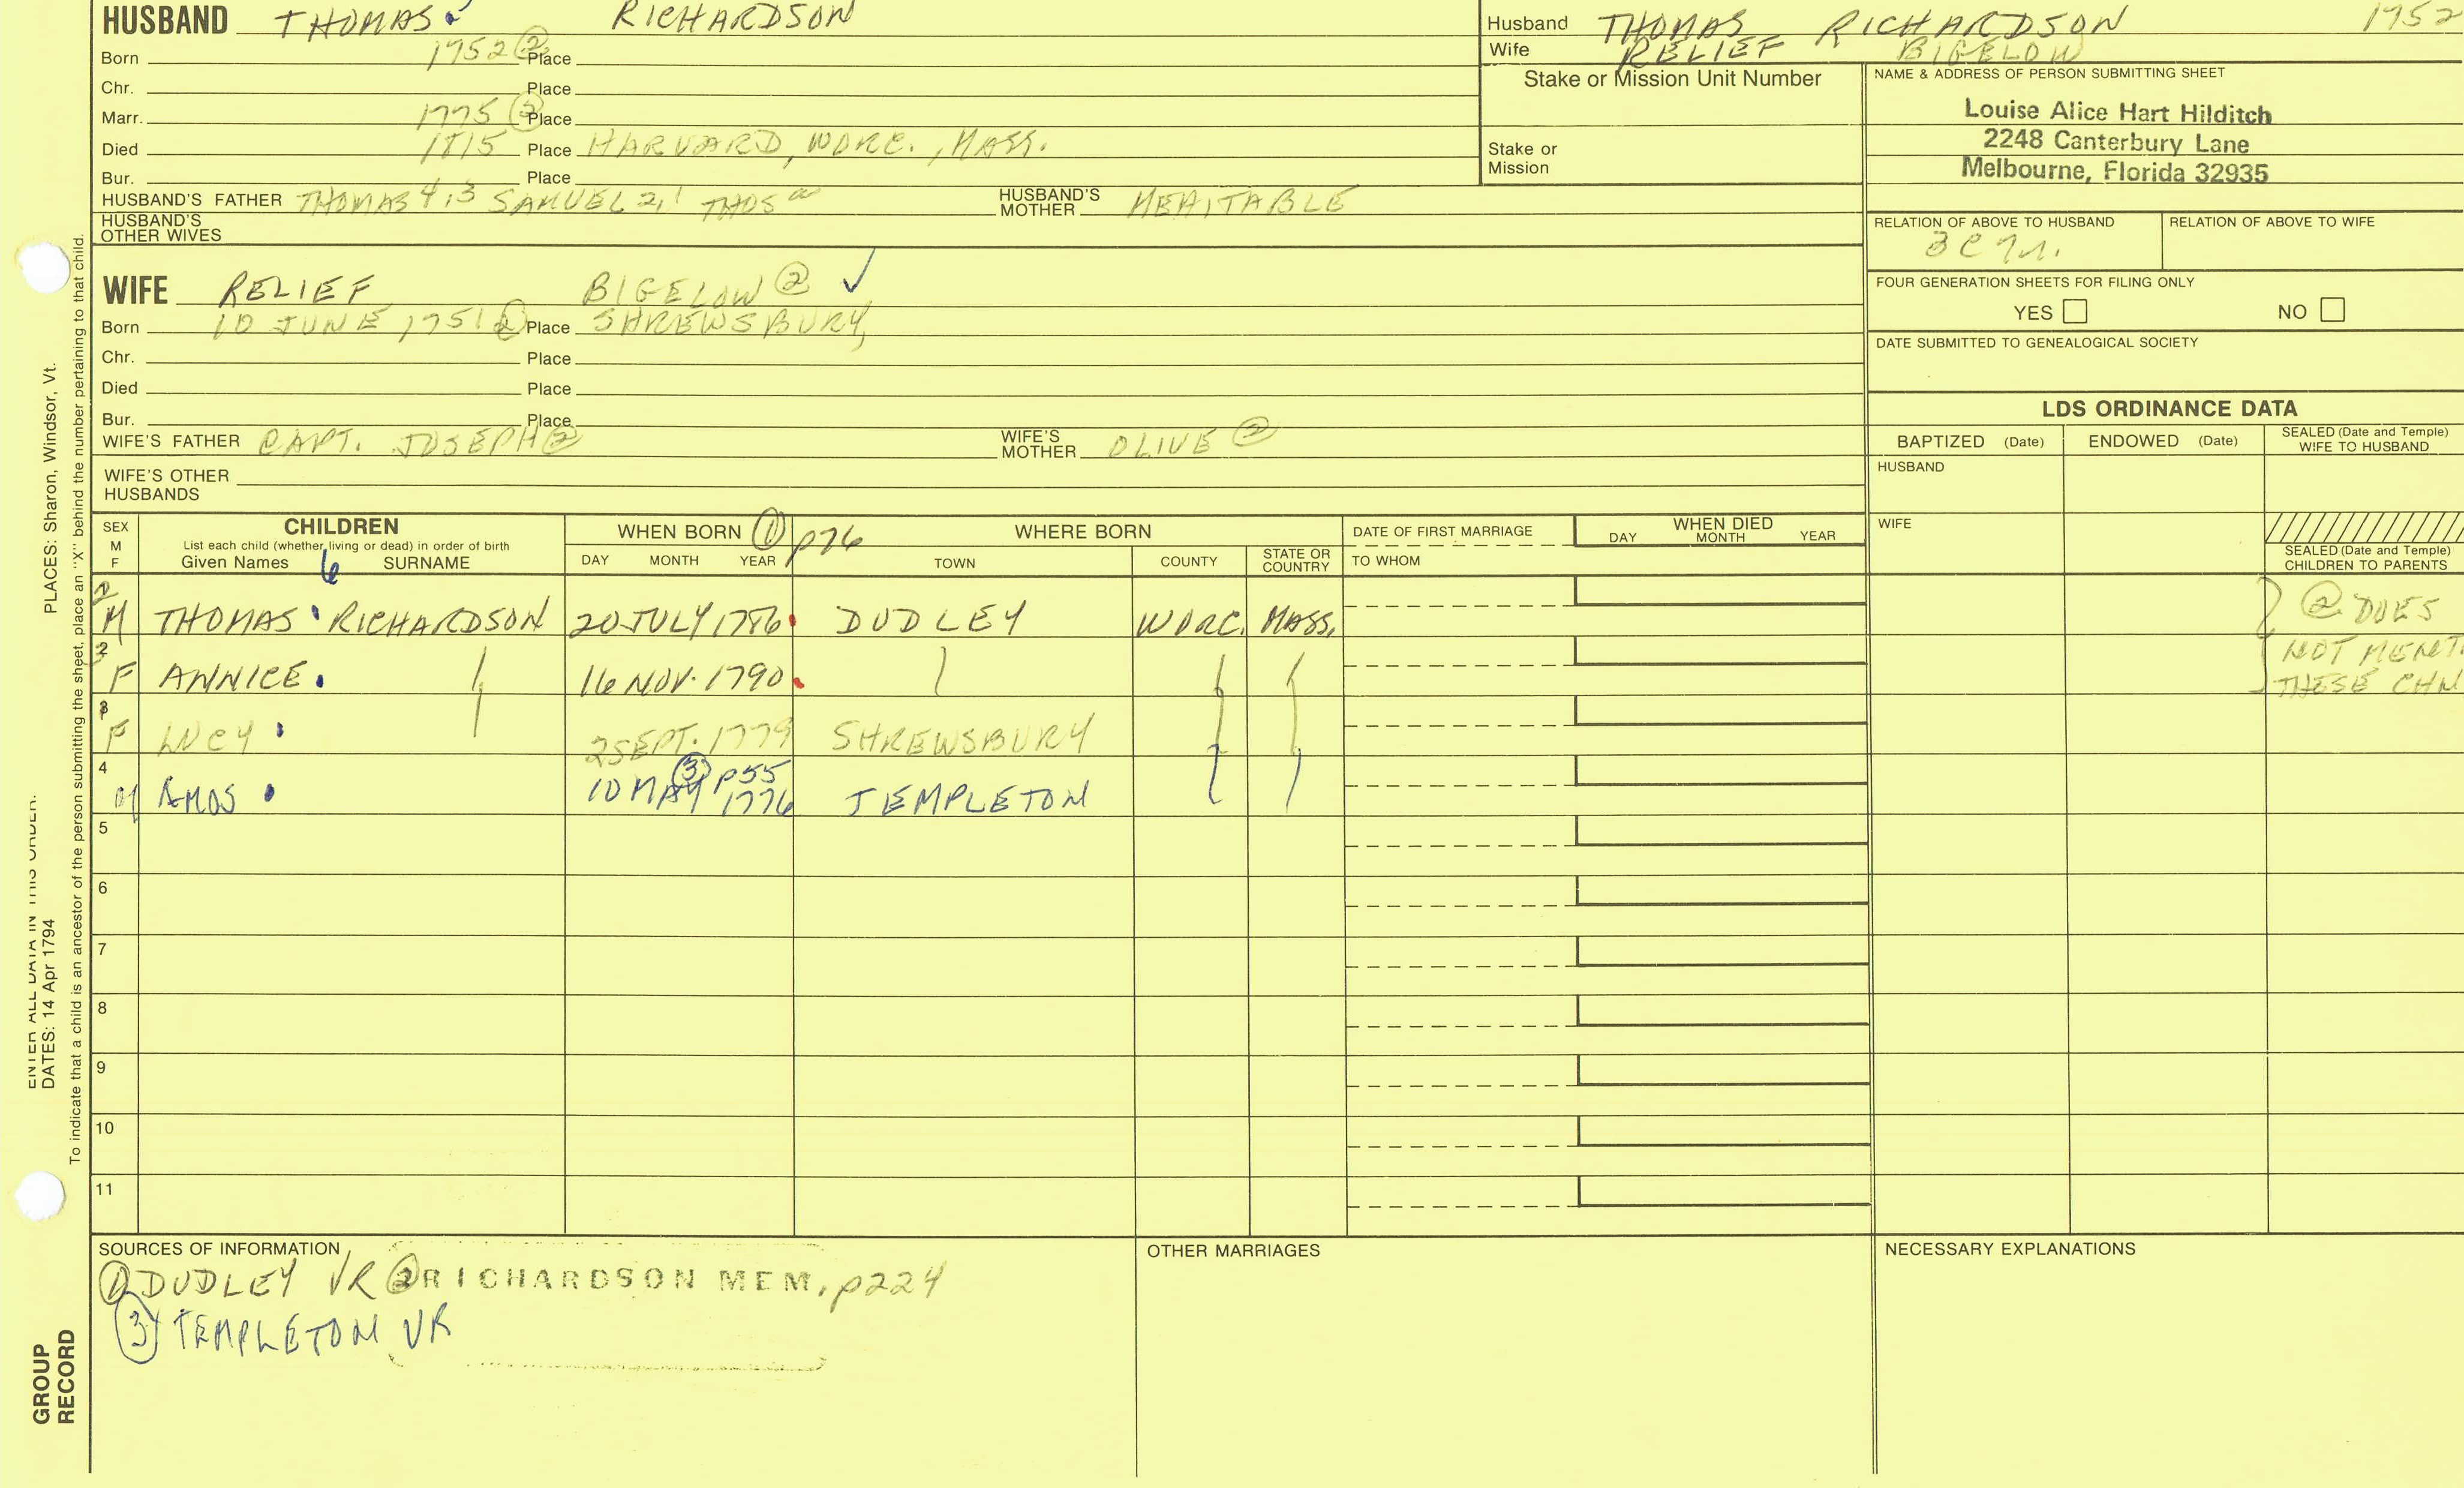 HUSBAND THOMAS RICHARDSON
Born 1752 ② Place
Chr. Place
Marr. 1775 ② Place
Died 1815 Place HARVARD, WORC., MASS.
Bur. Place
HUSBAND'S FATHER THOMAS 4,3 SAMUEL 2,1 THOS
HUSBAND'S MOTHER MEHITABLE
HUSBAND'S OTHER WIVES
WIFE RELIEF BIGELOW ② ✓
Born 10 JUNE 1751 ② Place SHREWSBURY,
Chr. Place
Died Place
Bur. Place
WIFE'S FATHER CAPT. JOSEPH ②
WIFE'S MOTHER OLIVE ②
WIFE'S OTHER HUSBANDS
Husband THOMAS RICHARDSON 1752
Wife RELIEF BIGELOW
Stake or Mission Unit Number
Stake or
Mission
NAME & ADDRESS OF PERSON SUBMITTING SHEET
Louise Alice Hart Hilditch
2248 Canterbury Lane
Melbourne, Florida 32935
RELATION OF ABOVE TO HUSBAND RELATION OF ABOVE TO WIFE
FOUR GENERATION SHEETS FOR FILING ONLY
YES NO
DATE SUBMITTED TO GENEALOGICAL SOCIETY
LDS ORDINANCE DATA
BAPTIZED (Date) ENDOWED (Date) SEALED (Date and Temple) WIFE TO HUSBAND
HUSBAND
WIFE
SEALED (Date and Temple) CHILDREN TO PARENTS
SEX M F
CHILDREN
List each child (whether living or dead) in order of birth
Given Names 6 SURNAME
WHEN BORN ① p76
DAY MONTH YEAR
WHERE BORN
TOWN COUNTY STATE OR COUNTRY
DATE OF FIRST MARRIAGE
TO WHOM
WHEN DIED
DAY MONTH YEAR
M THOMAS RICHARDSON 20 JULY 1786 DUDLEY WORC. MASS.
2 F ANNICE 16 NOV. 1790
3 F LUCY 2 SEPT. 1779 SHREWSBURY
4 M AMOS 10 MAY 1776 ③ p55 TEMPLETON
② DOES
NOT MENT
THESE CHN
5
6
7
8
9
10
11
SOURCES OF INFORMATION
① DUDLEY VR ② RICHARDSON MEM. p224
③ TEMPLETON VR
OTHER MARRIAGES
NECESSARY EXPLANATIONS
PLACES: Sharon, Windsor, Vt.
ENTER ALL DATA IN THIS ORDER:
DATES: 14 Apr 1794
To indicate that a child is an ancestor of the person submitting the sheet, place an "X" behind the number pertaining to that child.
GROUP
RECORD